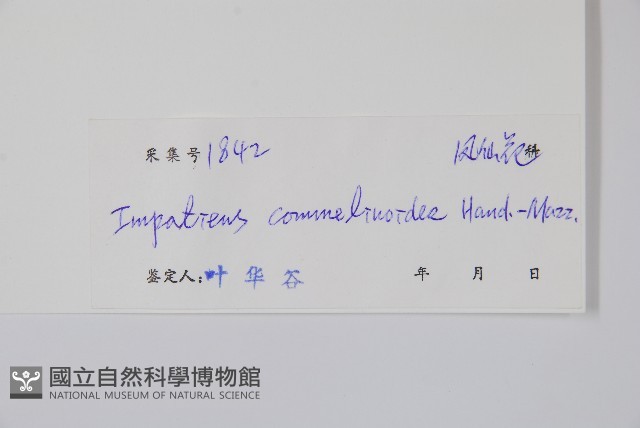 采集号 1842 凤仙花科
Impatiens commelinoides Hand.-Mazz.
鉴定人: 叶华谷 年 月 日
國立自然科學博物館
NATIONAL MUSEUM OF NATURAL SCIENCE